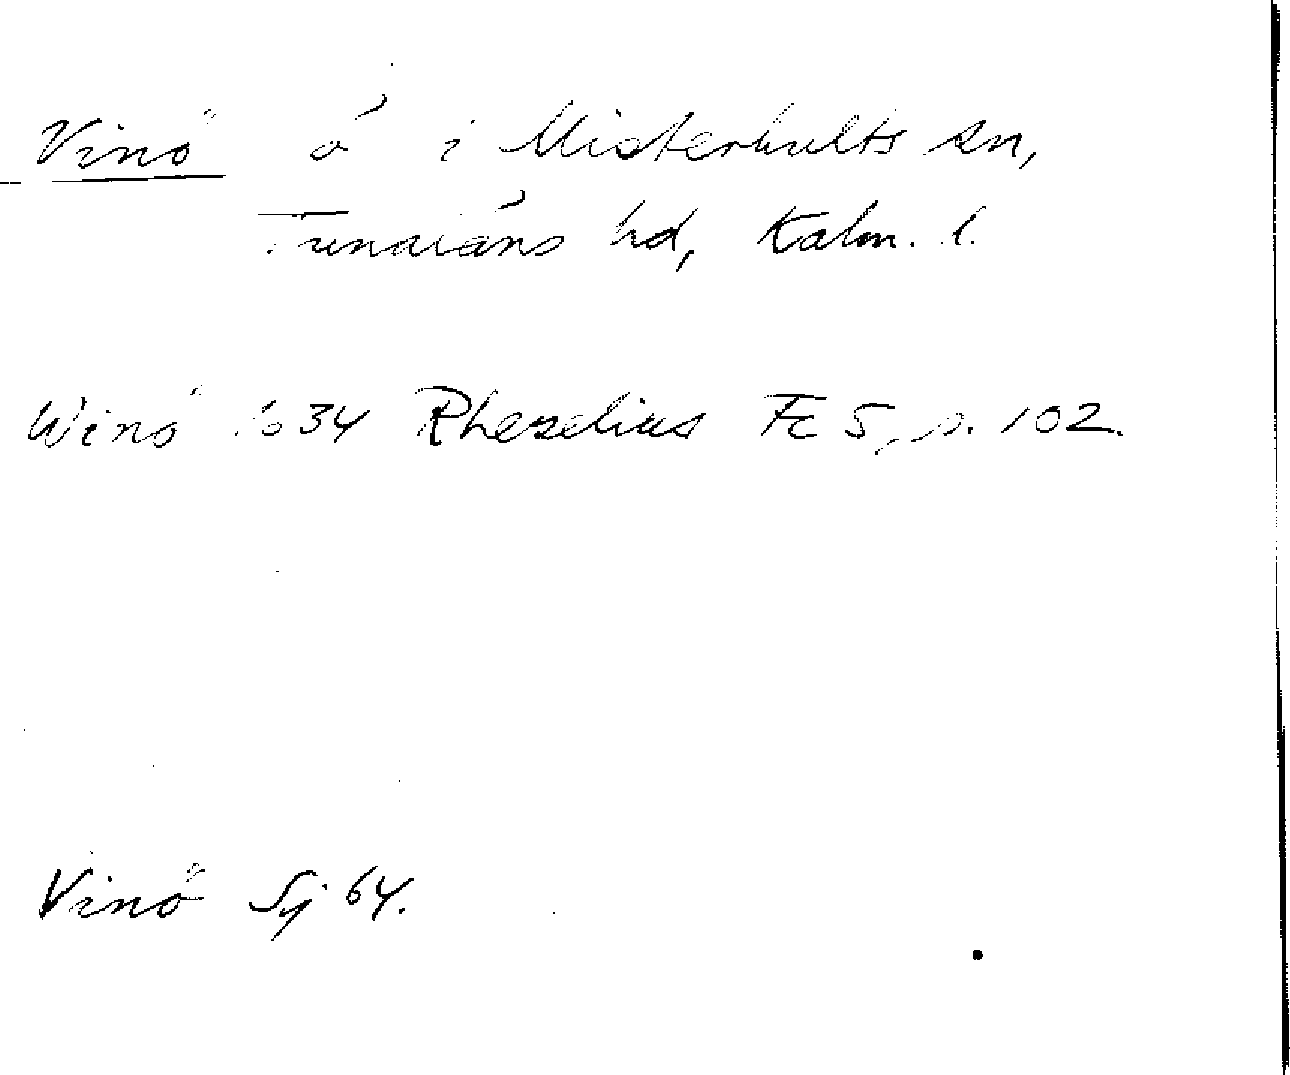 Vinö ö i Misterhults sn,
Tunaläns hd, Kalm. l.
Winö 1634 Rhezelius Fc 5, s. 102.
Vinö Sj 64.